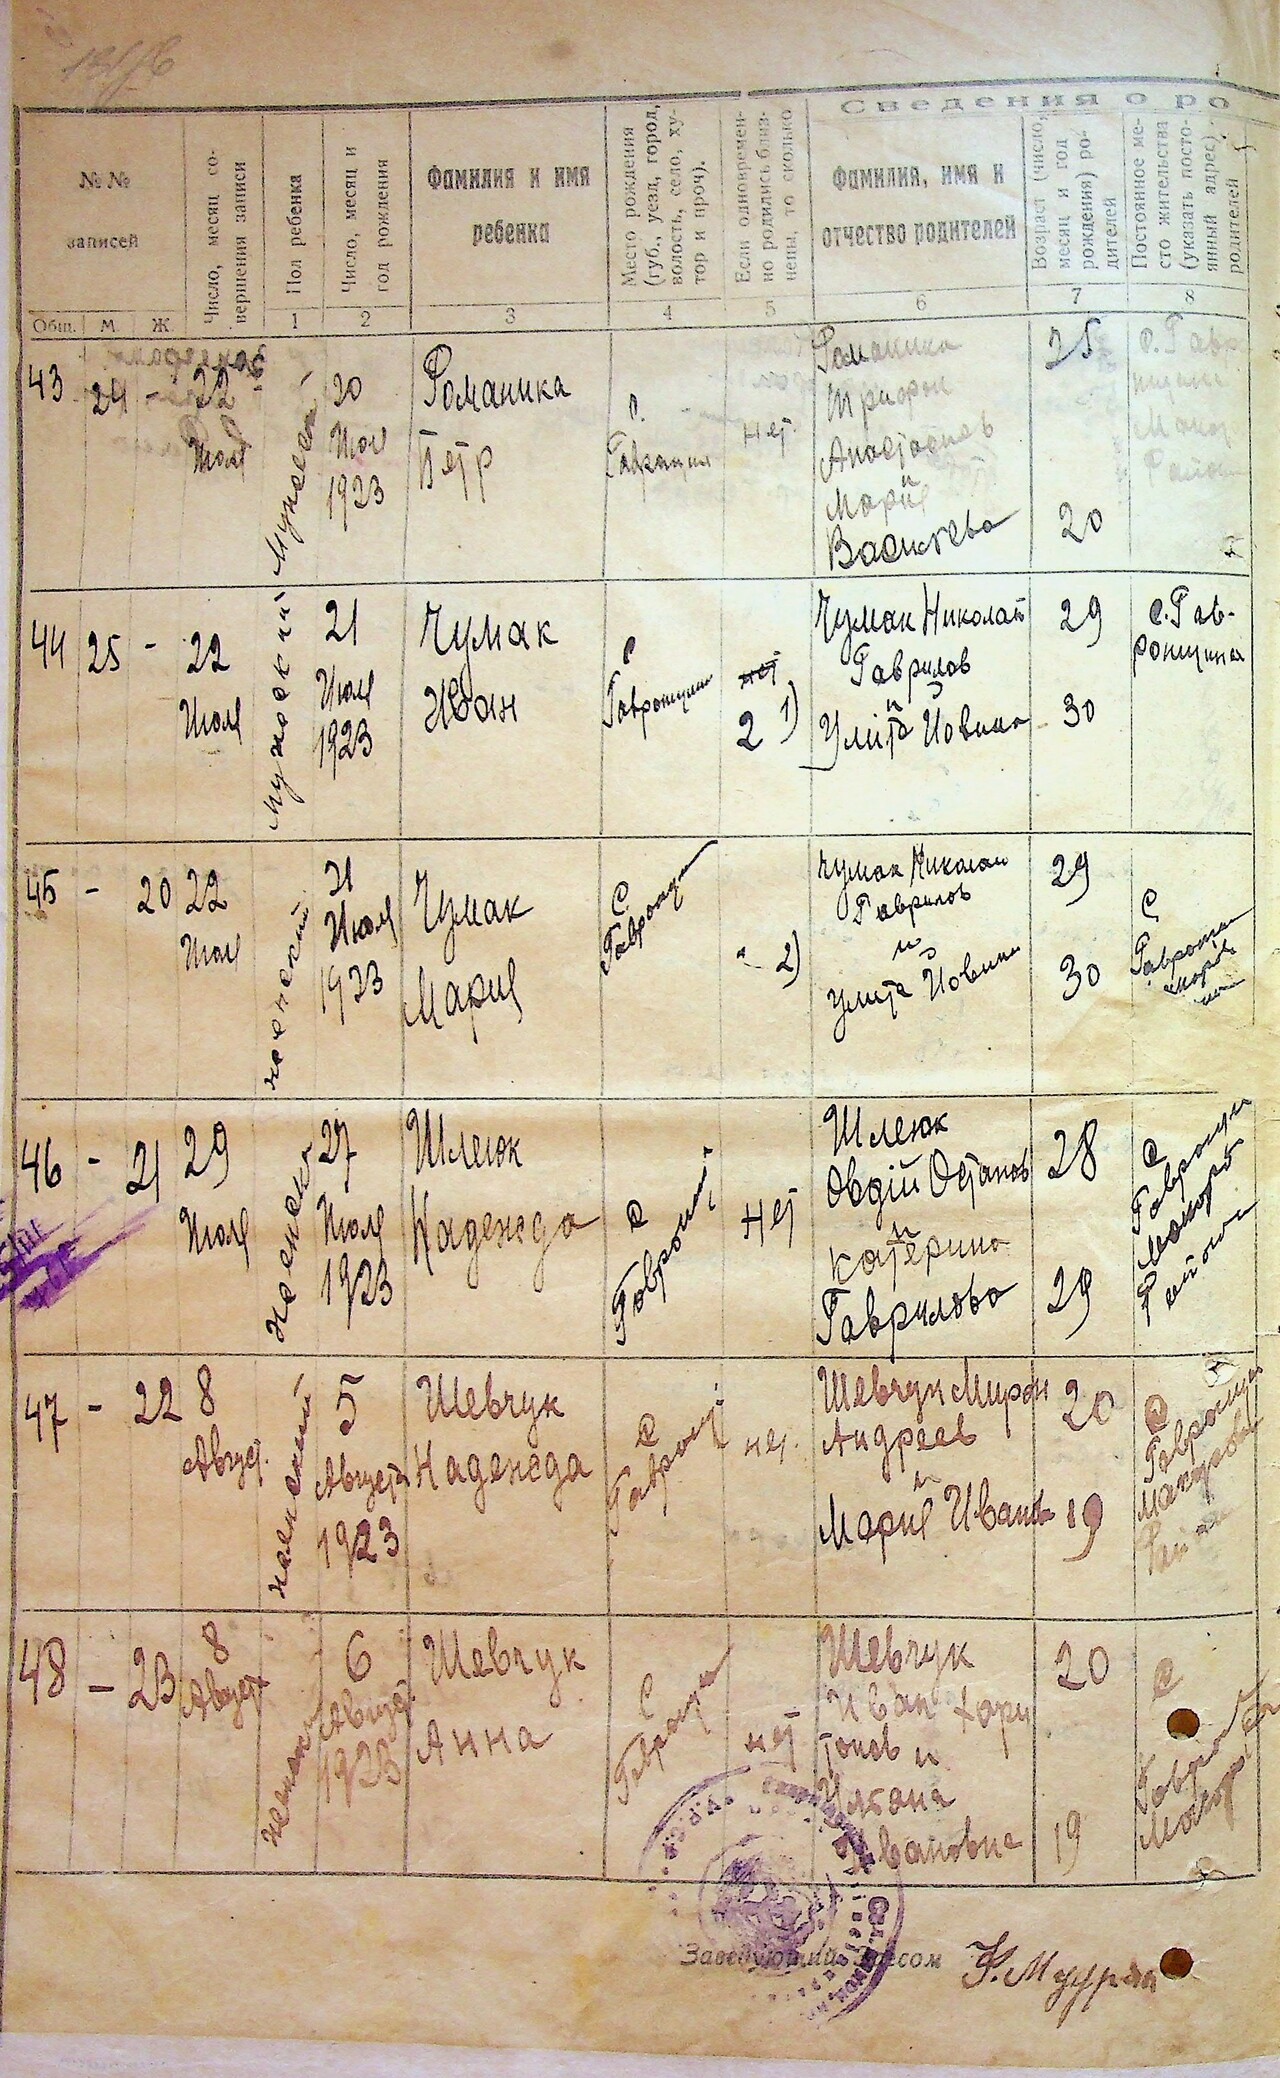 Сведения о ро
№№
записей
Общ. М. Ж.
Число, месяц со-
вершения записи
Пол ребенка
1
Число, месяц и
год рождения
2
Фамилия и имя
ребенка
3
Место рождения
(губ., уезд, город,
волость, село, ху-
тор и проч).
4
Если одновремен-
но родились близ-
нецы, то сколько
5
Фамилия, имя и
отчество родителей
6
Возраст (число,
месяц и год
рождения) ро-
дителей
7
Постоянное ме-
сто жительства
(указать посто-
янный адрес)
родителей
8
43 24 - 22
Июля
Мужской
20
Июл
1923
Романика
Петр
с.
нет.
Романика
Трифон
и
Мария
Васильева
25
20
с. Гавр
44 25 - 22
Июля
Мужский
21
Июля
1923
Чумак
Иван
с
Гавронщин
нет
2 1)
Чумак Николай
Гаврилов
и
Улита Иовина
29
30
с. Гав-
ронщина
45 - 20 22
Июля
женский
21
Июля
1923
Чумак
Мария
С
Гавронщ
2)
Чумак Николай
Гаврилов
и
Улита Иовина
29
30
С
46 - 21 29
Июля
женский
27
Июля
1923
Шлеюк
Надежда
с
нет
Шлеюк
Овдій Остапов
и
Катерина
Гаврилова
28
29
с
47 - 22 8
Август.
женский
5
Августа
1923
Шевчук
Надежда
с
Гавронщ.
нет.
Шевчук Мирон
Андреев
и
Мария Иванов
20
19
с
48 - 23 8
Август
женский
6
Август
1923
Шевчук
Анна
С
нет
Шевчук
Иван Хари
тонов и
Ульяна
Ивановна
20
19
с
Заведующий Загсом